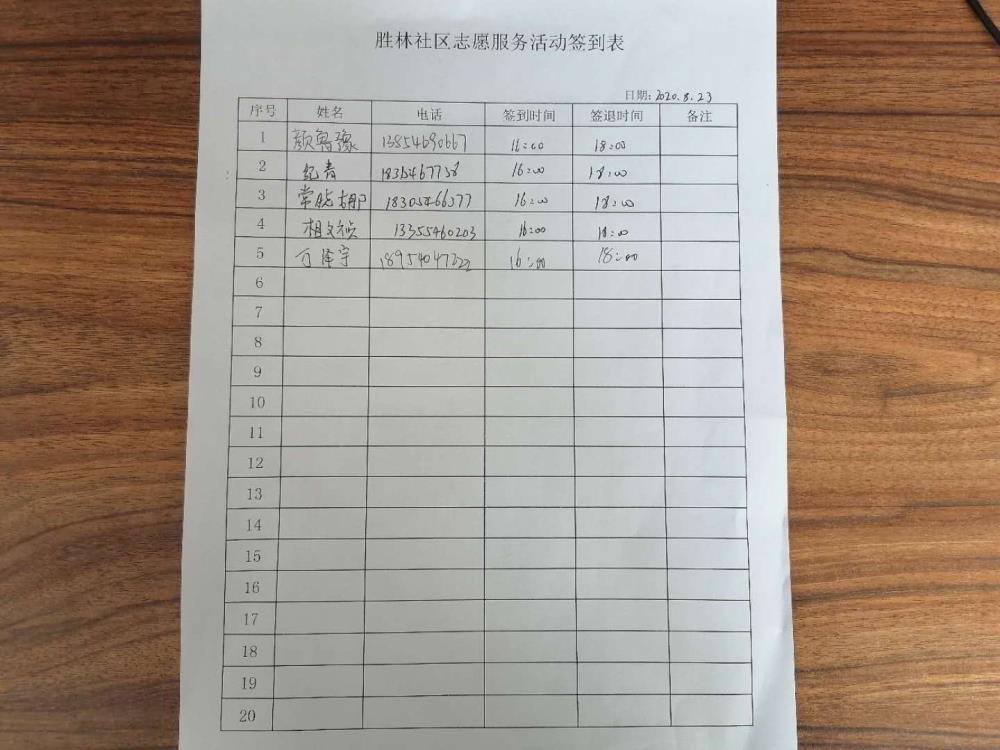 胜林社区志愿服务活动签到表
日期: 2020.8.23
序号 姓名 电话 签到时间 签退时间 备注
1 颜鲁豫 13854690667 16:00 18:00
2 纪青 16:00 18:00
3 常晓娜 18305466377 16:00 18:00
4 相文祯 13355460203 16:00 18:00
5 万泽宇 18954047222 16:00 18:00
6
7
8
9
10
11
12
13
14
15
16
17
18
19
20